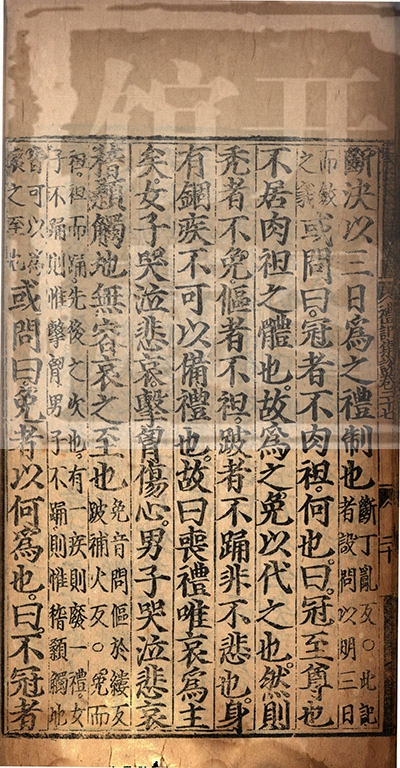 斷決以三日為之禮制也
斷丁亂反○此記
者設問以明三日
而斂
之義
或問曰。冠者不肉袒。何也。曰。冠至尊也
不居肉袒之體也。故為之免以代之也。然則
禿者不免。傴者不袒。跛者不踊。非不悲也。身
有錮疾不可以備禮也。故曰喪禮唯哀為主
矣。女子哭泣悲哀。擊胷傷心。男子哭泣悲哀
稽顙觸地無容。哀之至也
免音問傴於縷反
跛補火反○免而
袒袒而踊先後之次也有一疾則廢一禮女
子不踊則惟擊胷男子不踊則惟稽顙觸地
皆可以為
哀之至也
或問曰。免者以何為也。曰。不冠者
二十